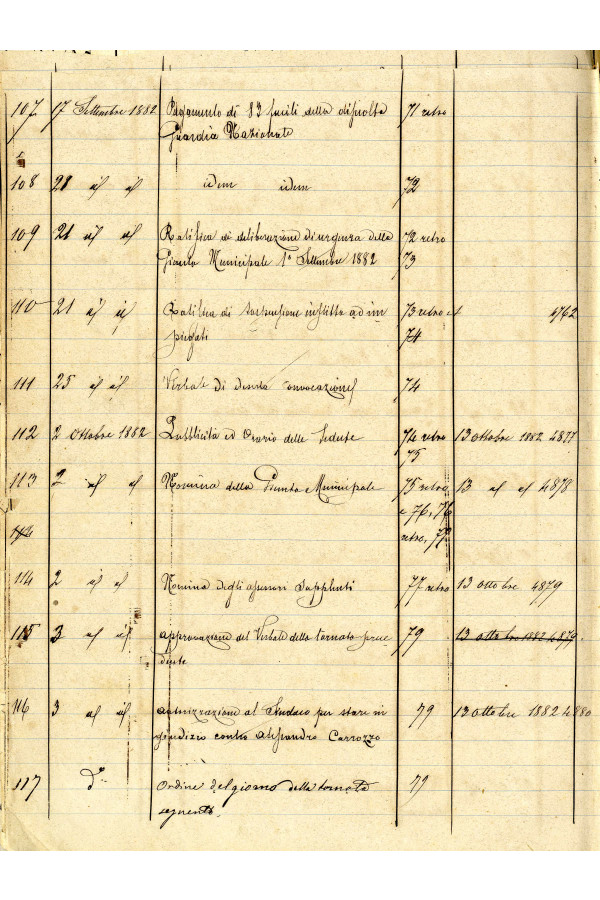 107 17 Settembre 1882 Pagamento di 83 fucili della disciolta 71 retro
Guardia Nazionale
108 28 id id idem idem 72
109 21 id id Ratifica di deliberazione d'urgenza della 72 retro
Giunta Municipale 1° Settembre 1882 73
110 21 id id Ratifica di inflitta ad im 73 retro et 4762
piegati 74
111 25 id id Verbale di deserta convocazione 74
112 2 Ottobre 1882 Pubblicità ed Orario delle Sedute 74 retro 13 ottobre 1882 4877
75
113 2 id id Nomina della Giunta Municipale 75 retro 13 id id 4878
e 76, 76
114 retro, 77
114 2 id id Nomina degli assessori Supplenti 77 retro 13 ottobre 4879
115 3 id id approvazione del Verbale della tornata prece 79 13 ottobre 1882 4879
dente
116 3 id id autorizzazione al Sindaco per stare in 79 13 ottobre 1882 4880
giudizio contro Alessandro Carrozzo
117 d° Ordine del giorno della tornata 79
seguente.